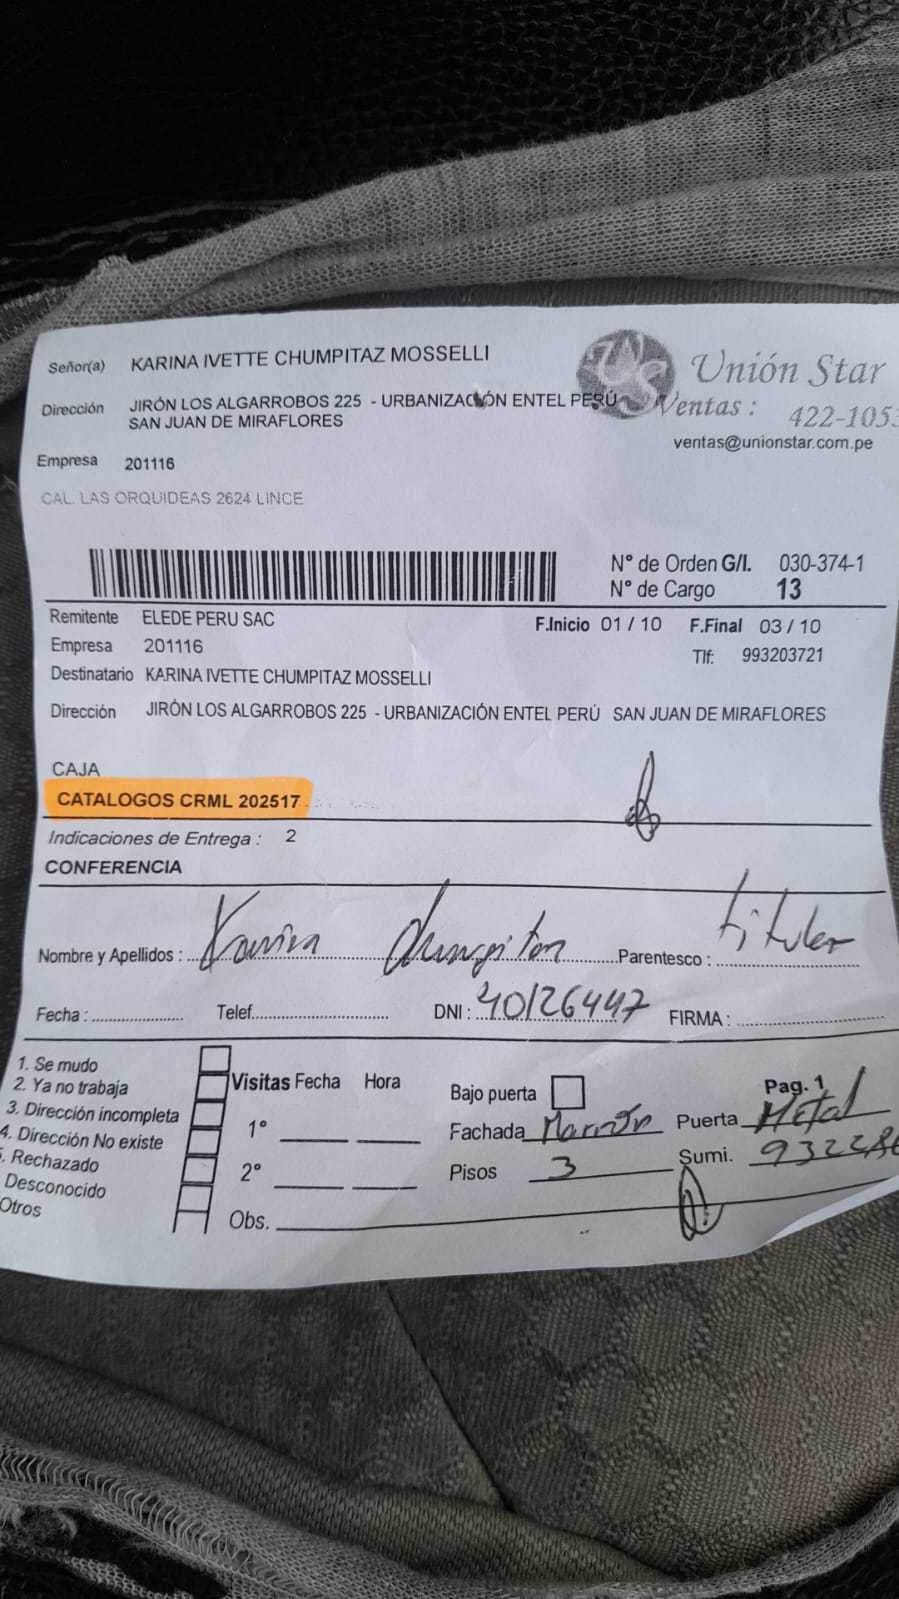 Señor(a) KARINA IVETTE CHUMPITAZ MOSSELLI
Unión Star
Dirección JIRÓN LOS ALGARROBOS 225 - URBANIZACIÓN ENTEL PERÚ
SAN JUAN DE MIRAFLORES
Ventas : 422-1053
ventas@unionstar.com.pe
Empresa 201116
CAL. LAS ORQUIDEAS 2624 LINCE
N° de Orden G/I. 030-374-1
N° de Cargo 13
Remitente ELEDE PERU SAC
F.Inicio 01 / 10 F.Final 03 / 10
Empresa 201116
Tlf: 993203721
Destinatario KARINA IVETTE CHUMPITAZ MOSSELLI
Dirección JIRÓN LOS ALGARROBOS 225 - URBANIZACIÓN ENTEL PERÚ SAN JUAN DE MIRAFLORES
CAJA
CATALOGOS CRML 202517
Indicaciones de Entrega : 2
CONFERENCIA
Nombre y Apellidos : Karina Chumpitaz Parentesco : titular
Fecha : Telef. DNI : 40126447 FIRMA :
1. Se mudo
2. Ya no trabaja
3. Dirección incompleta
4. Dirección No existe
. Rechazado
Desconocido
Otros
Visitas Fecha Hora
1°
2°
Obs.
Bajo puerta Pag. 1
Fachada Marrón Puerta Metal
Pisos 3 Sumi. 93228